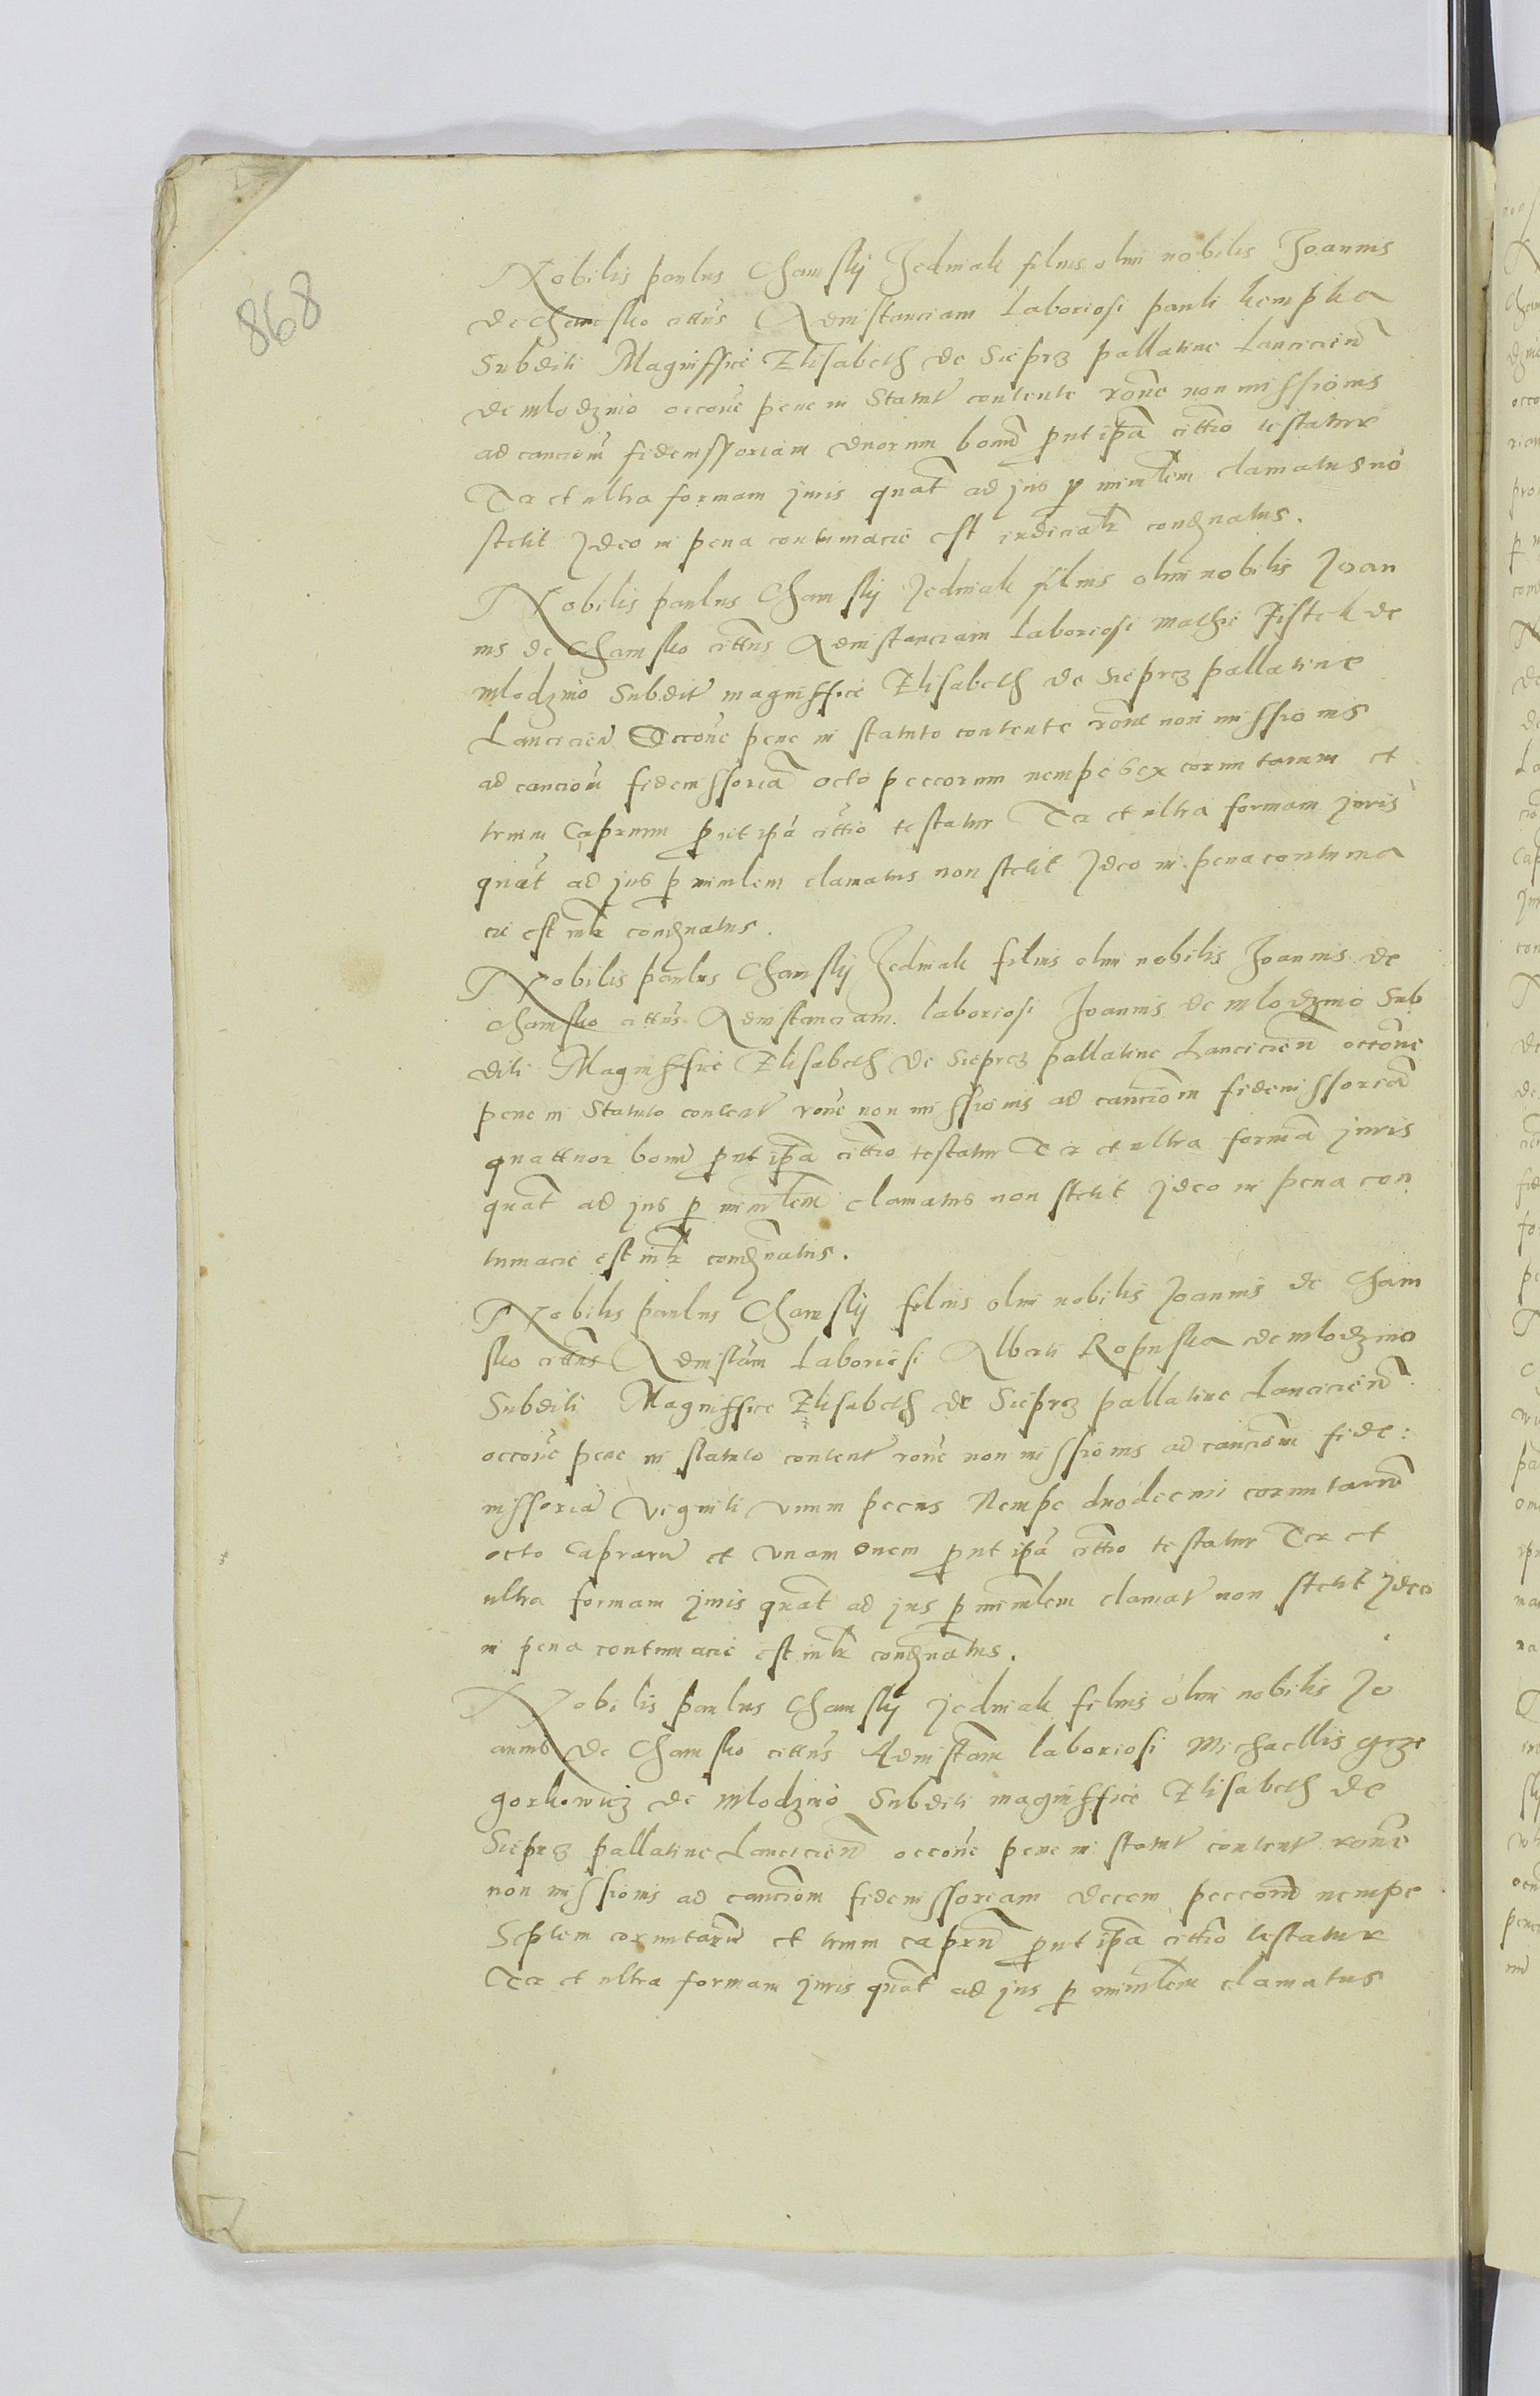 868
Nobilis paulus Chamskij Jedniak filius olim nobilis Joannis
de Chamsko cittus Ad instanciam Laboriosi pauli kempka
Subditi Magniffice Elisabeth de Sieprcz pallatine Lancicien
de mlodzino occone pene in Statut contente rone non missionis
ad caucionem fideiussoriam duorum boum prout ipa cittio testatur
Ter et ultra formam juris quat ad jus p minlem clamatus no
stetit Jdeo in pena contumacie est iudicialr condnatus.
Nobilis paulus Chamskij Jedniak filius olim nobilis Joan
nis de Chamsko cittus Ad instanciam Laboriosi mathie de
mlodzino Subdit magniffice Elisabeth de Sieprcz pallatine
Lancicien Occone pene in statuto contente rone non missionis
ad caucionem fideiussoria octo peccorum nempe sex cornutarum et
trium Caprarum prout ipa cittio testatur Ter et ultra formam juris
quat ad jus p minlem clamatus non stetit Jdeo in pena contuma
cie est inlr condnatus.
Nobilis paulus Chamskij Jedniak filius olim nobilis Joannis de
Chamsko cittus Ad instanciam laboriosi Joannis de mlodzino Sub
diti Magniffice Elisabeth de Sieprcz pallatine Lancicien occone
pene in Statuto content rone non missionis ad caucionem fideiussoria
quattuor boum prout ipa cittio testatur Ter et ultra forma juris
quat ad jus p minlem clamatus non stetit Jdeo in pena con
tumacie est inlr condnatus.
Nobilis paulus Chamskij filius olim nobilis Joannis de Cham
sko cittus Ad instam Laboriosi Alberti Ropuska de mlodzino
Subditi Magniffice Elisabeth de Sieprcz pallatine Lancicien
occone pene in statuto content rone non missionis ad caucionem fide:
iussoria viginti unum pecus Nempe duodecim cornutarum
octo Caprarum et unam ovem prout ipa cittio testatur Ter et
ultra formam juris quat ad jus p minlem clamat non stetit Jdeo
in pena contumacie est inlr condnatus.
Nobilis paulus Chamskij Jedniak filius olim nobilis Jo
annis de Chamsko cittus Ad instam laboriosi Michaellis grze
gorkowicz de mlodzino Subditi magniffice Elisabeth de
Sieprcz pallatine Lancicien occone pene in statut content rone
non missionis ad caucionem fideiussoriam decem peccorum nempe
Septem cornutarum et trium caprarum prout ipa cittio testatur
Ter et ultra formam juris quat ad jus p minlem clamatus